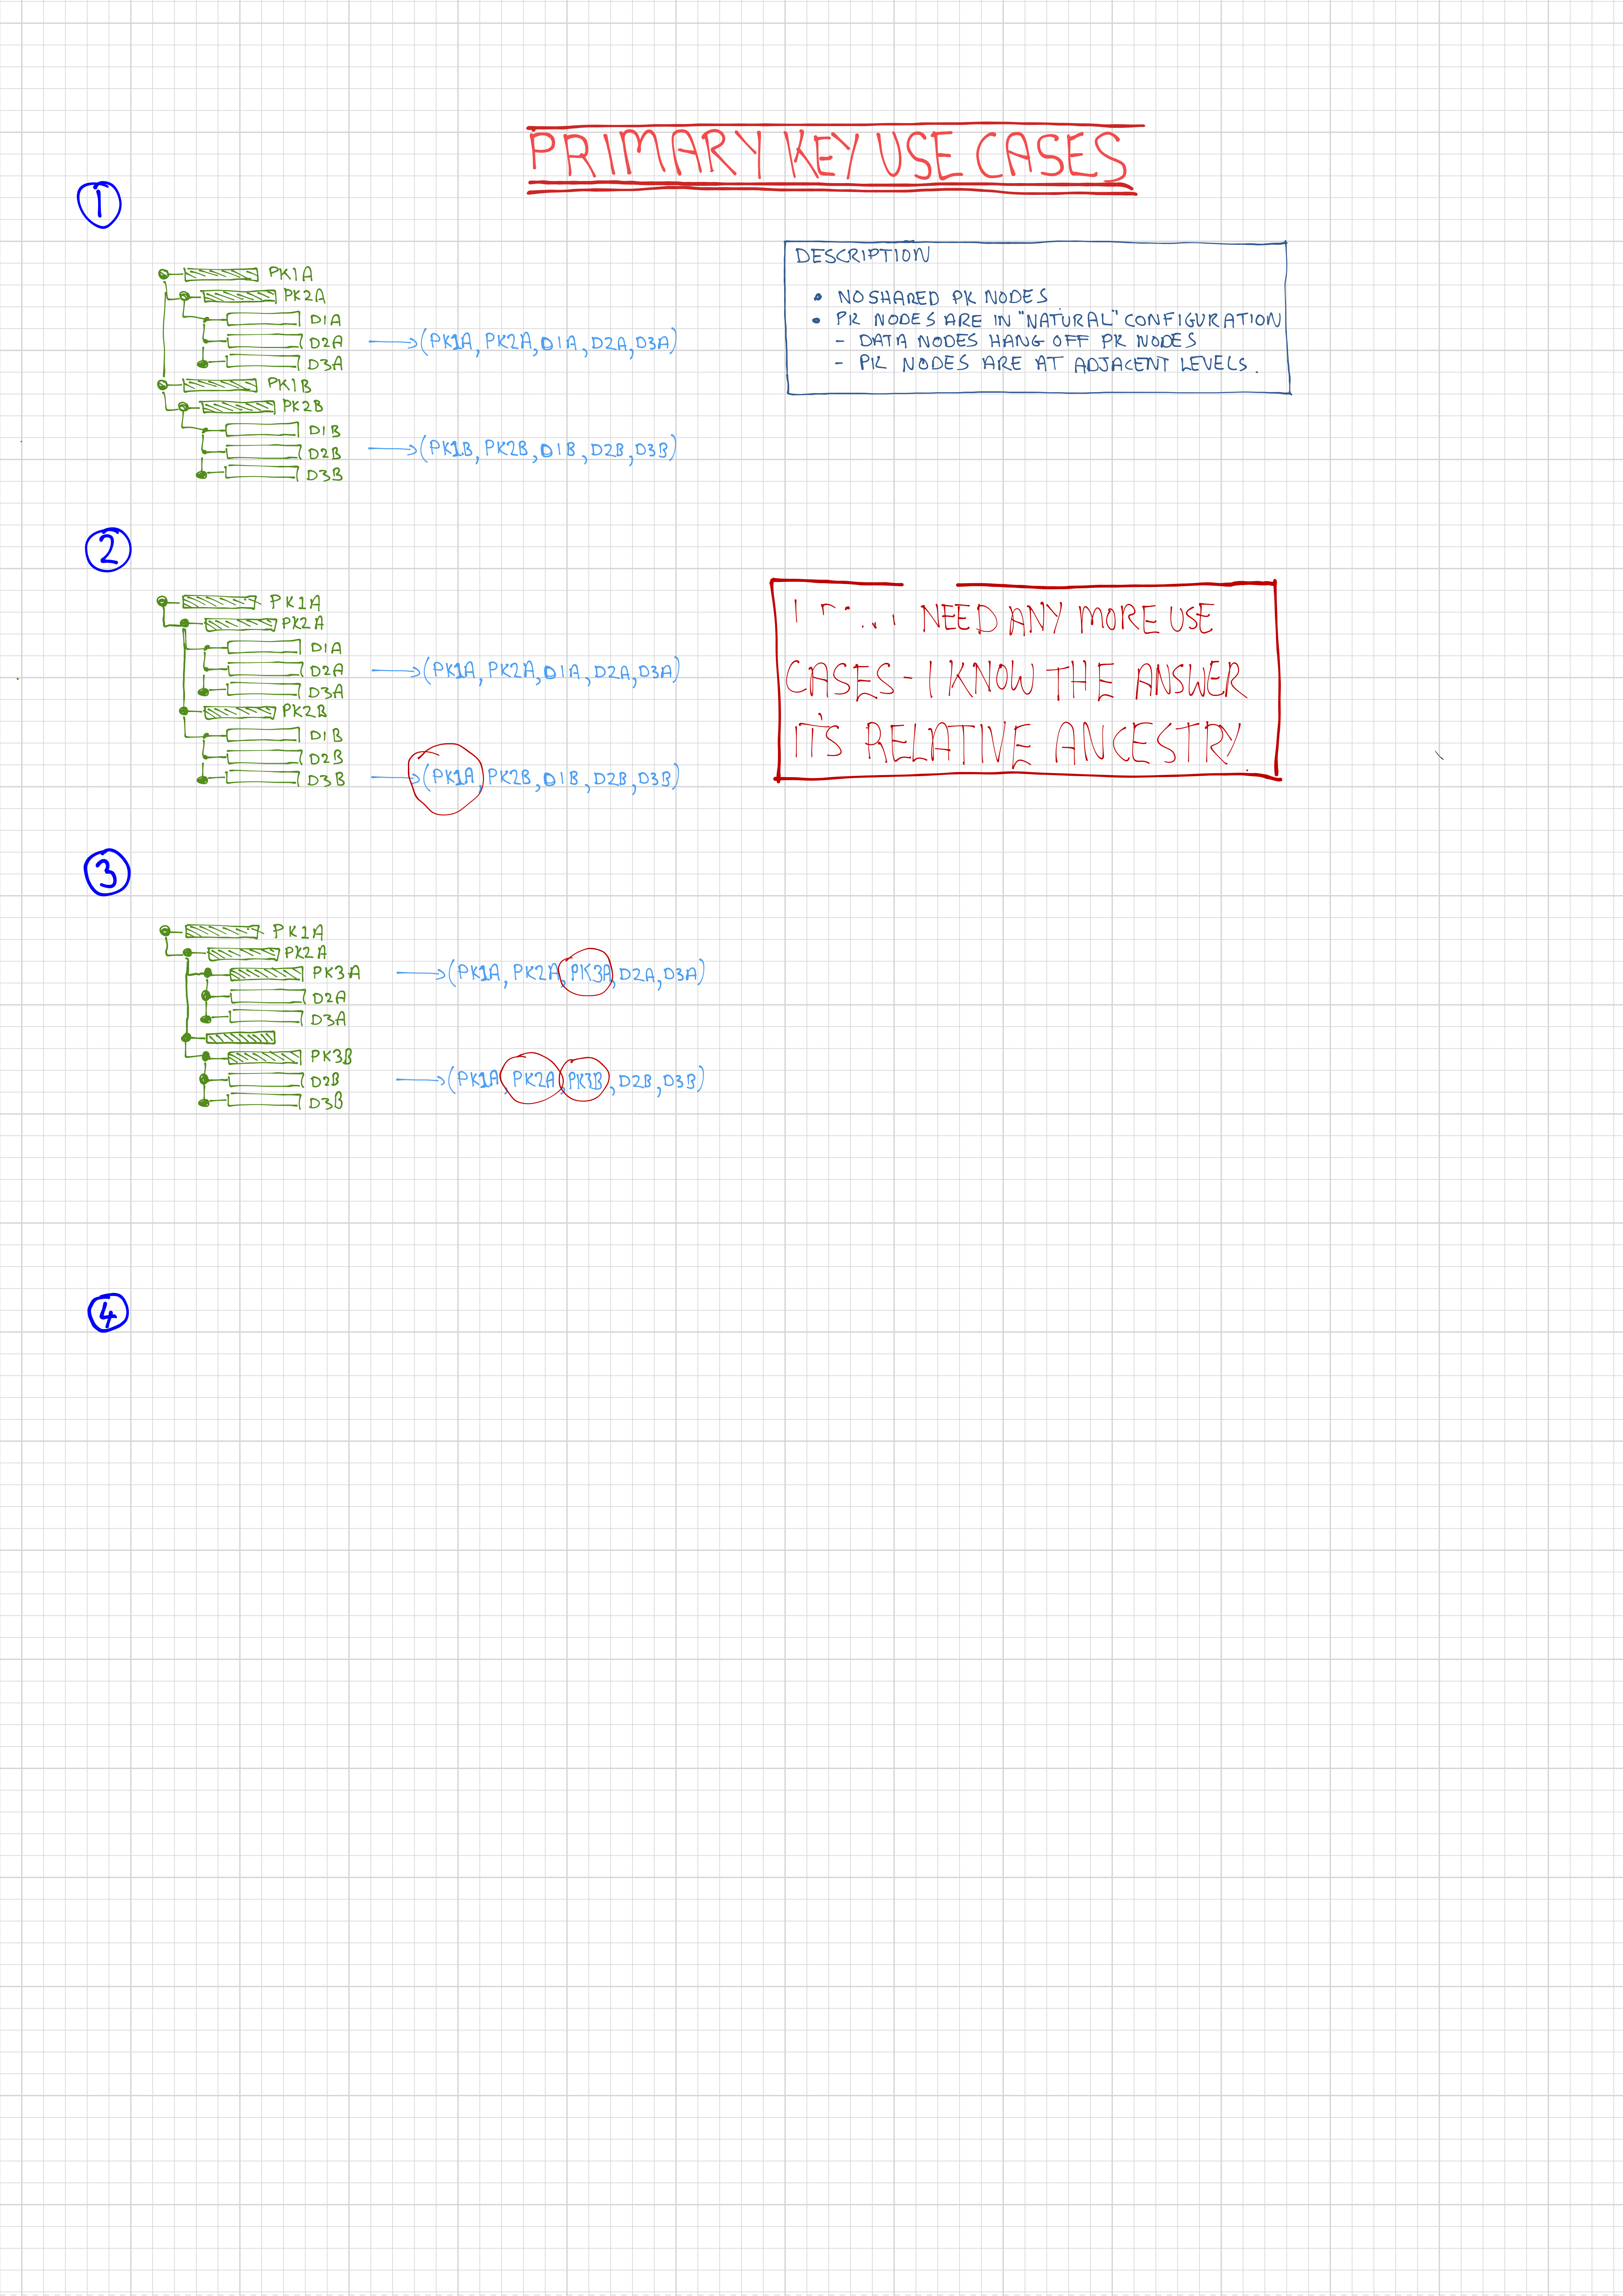 PRIMARY KEY USE CASES
1
PK1A
PK2A
D1A
D2A → (PK1A, PK2A, D1A, D2A, D3A)
D3A
PK1B
PK2B
D1B
D2B → (PK1B, PK2B, D1B, D2B, D3B)
D3B
DESCRIPTION
• NO SHARED PK NODES
• PK NODES ARE IN "NATURAL" CONFIGURATION
- DATA NODES HANG OFF PK NODES
- PK NODES ARE AT ADJACENT LEVELS.
2
PK1A
PK2A
D1A
D2A → (PK1A, PK2A, D1A, D2A, D3A)
D3A
PK2B
D1B
D2B
D3B → (PK1A, PK2B, D1B, D2B, D3B)
I NEED ANY MORE USE
CASES - I KNOW THE ANSWER
IT'S RELATIVE ANCESTRY
3
PK1A
PK2A
PK3A → (PK1A, PK2A, PK3A, D2A, D3A)
D2A
D3A
PK3B
D2B → (PK1A, PK2A, PK3B, D2B, D3B)
D3B
4